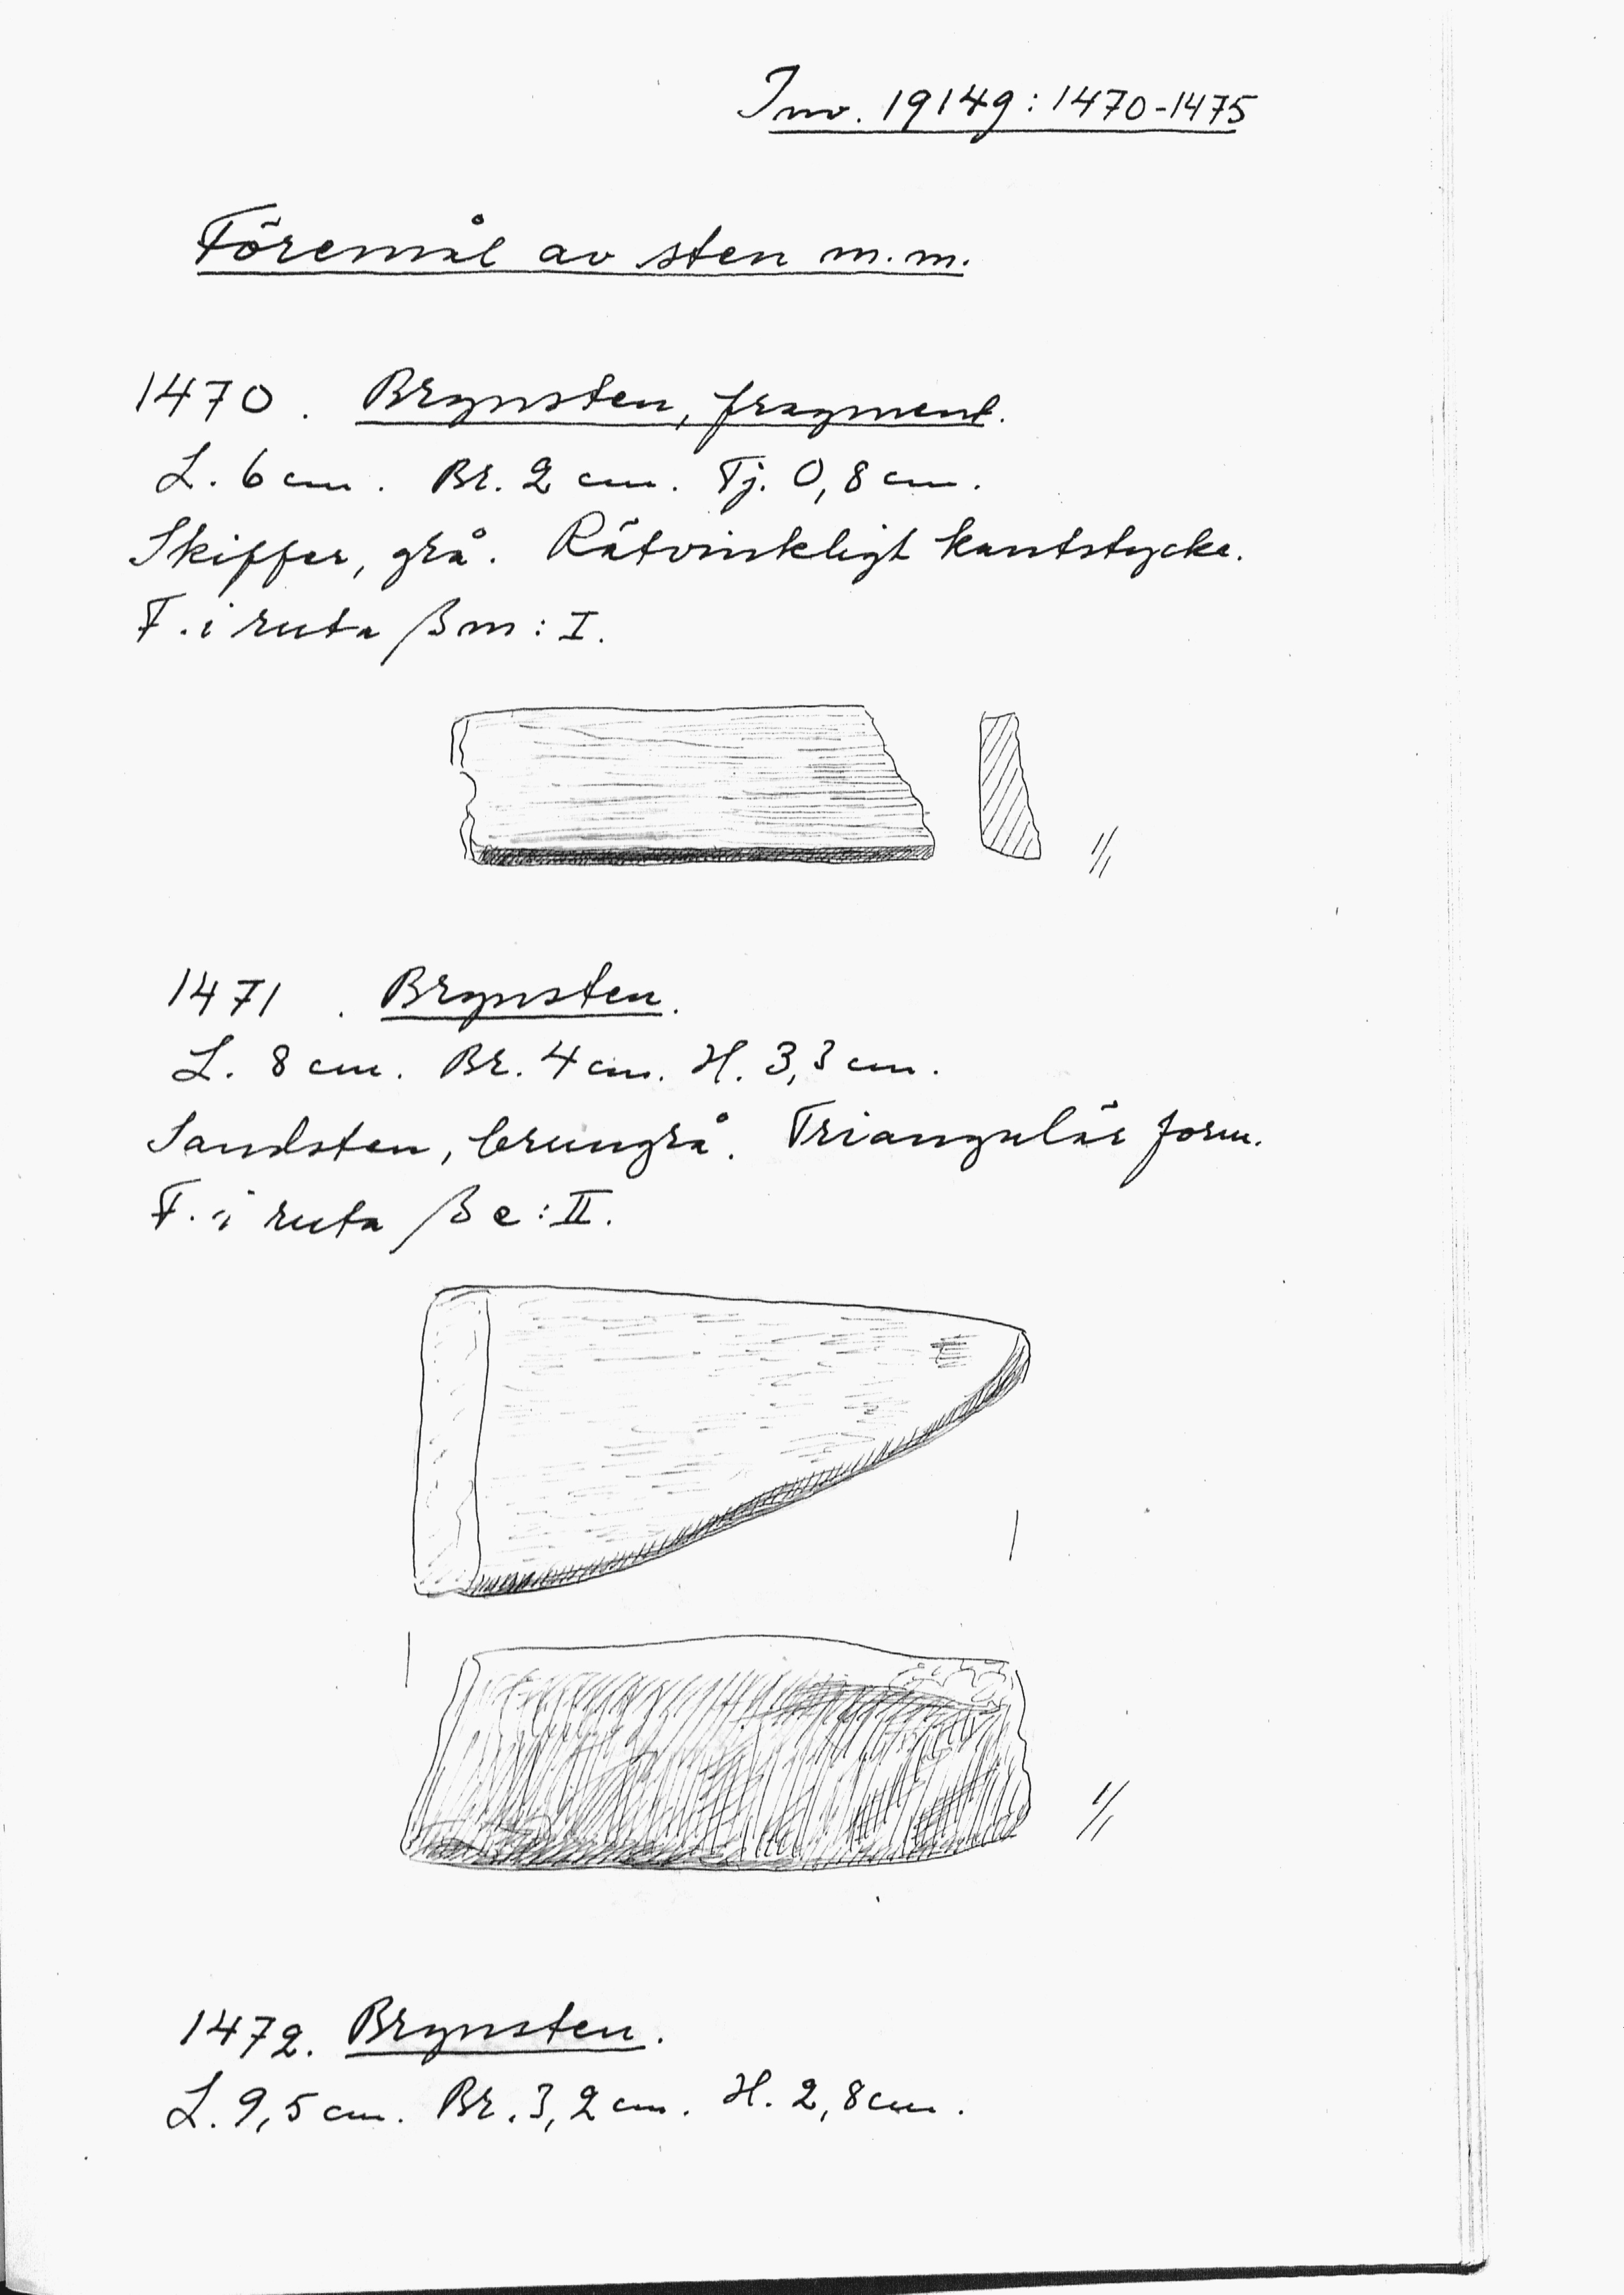 Inv. 19149:1470-1475
Föremål av sten m.m.
1470. Brynsten, fragment.
L. 6 cm. Br. 2 cm. Tj. 0,8 cm.
Skiffer, grå. Rätvinkligt kantstycke.
F. i ruta βm: I.
1/1
1471. Brynsten.
L. 8 cm. Br. 4 cm. H. 3,3 cm.
Sandsten, brungrå. Triangulär form.
F. i ruta βe: II.
1/1
1472. Brynsten.
L. 9,5 cm. Br. 3,2 cm. H. 2,8 cm.